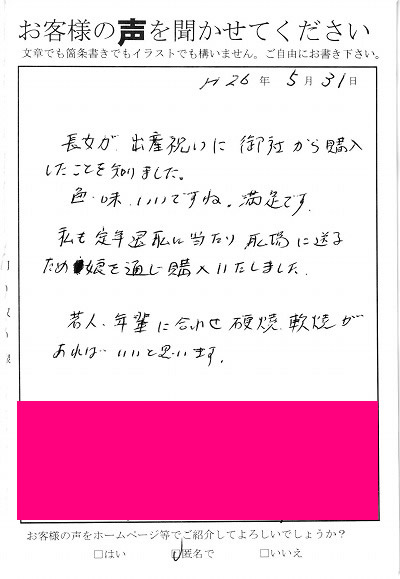 お客様の声を聞かせてください
文章でも箇条書きでもイラストでも構いません。ご自由にお書き下さい。
H26年5月31日
長女が、出産祝いに御社から購入
したことを知りました。
色・味、いいですね。満足です。
私も定年退職に当たり、職場に送る
ため娘を通じ購入いたしました。
若人、年輩に合わせ硬焼、軟焼が
あればいいと思います。
お客様の声をホームページ等でご紹介してよろしいでしょうか?
□はい □匿名で □いいえ